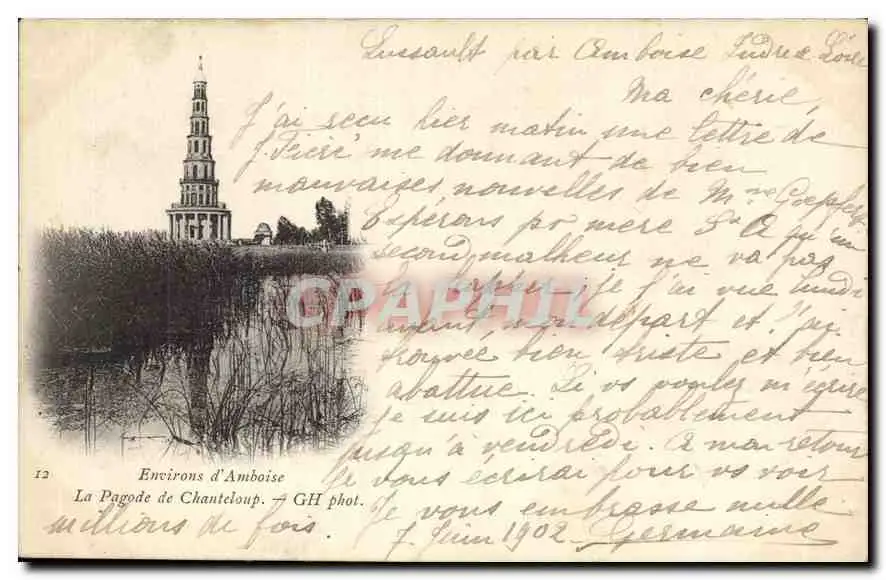 Lussault par Amboise Indre Loire
Ma chérie,
J'ai reçu hier matin une lettre de
J. Fiéré me donnant de bien
mauvaises nouvelles de Mme Goepfert
Espérons pr mère Sr A qu'un
second malheur ne va pas
je l'ai vue lundi
avant mon départ et l'ai
trouvée bien triste et bien
abattue. Si vs voulez m'écrire
je suis ici probablement
jusqu'à vendredi. A mon retour
Je vous écrirai pour vs voir
Je vous embrasse mille
millions de fois.
7 Juin 1902 Germaine
12 Environs d'Amboise
La Pagode de Chanteloup. — GH phot.
CPAPHIL